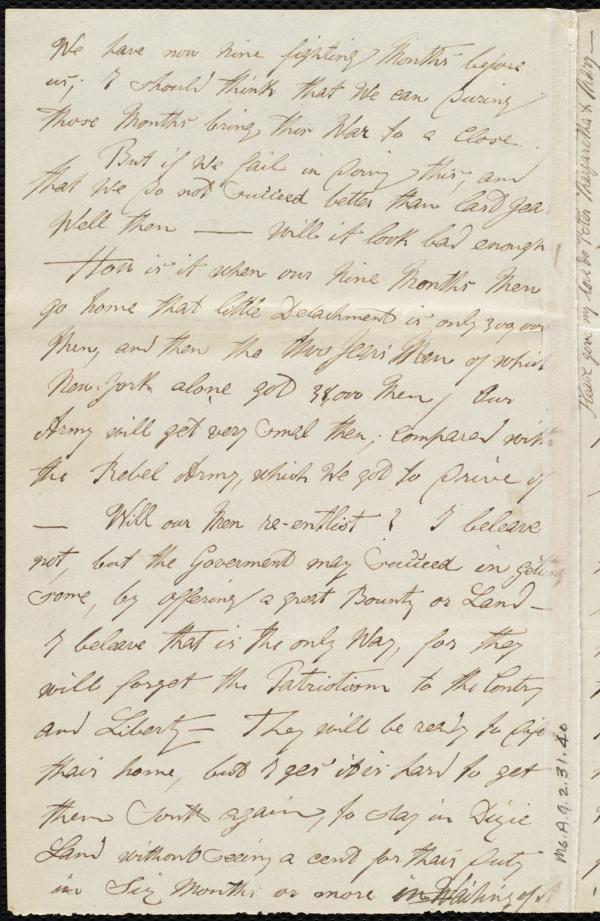 We have now nine fighting Months before
us; I should think that We can During
those Months bring this War to a Close.
But if We fail in Doing this, and
that We Do not Succeed better than last Yea
Well then — will it look bad enough
— How is it when our Nine Months Men
go home that little Detachment is only 300,000
Men, and then the two Years Men of which
New-York alone got 38,000 Men / Our
Army will get very Smal then, Compared with
the Rebel Army, which We got to Drive of
— Will our Men re-entlist? I beleave
not, but the Goverment may Succeed in getting
Some, by offering a great Bounty or Land —
I beleave that is the only Way, for they
will forget the Patriotism to the Contry
and Liberty — They will be ready to
thair home, but I ges' it is hard to get
them South again, to stay in Dixie
Land without Seeing a cent for thair Duty
in Six Months or more in Waiting of
Please give my love to Peter Margaretha & Mary —
Ms.A.9.2.31.40